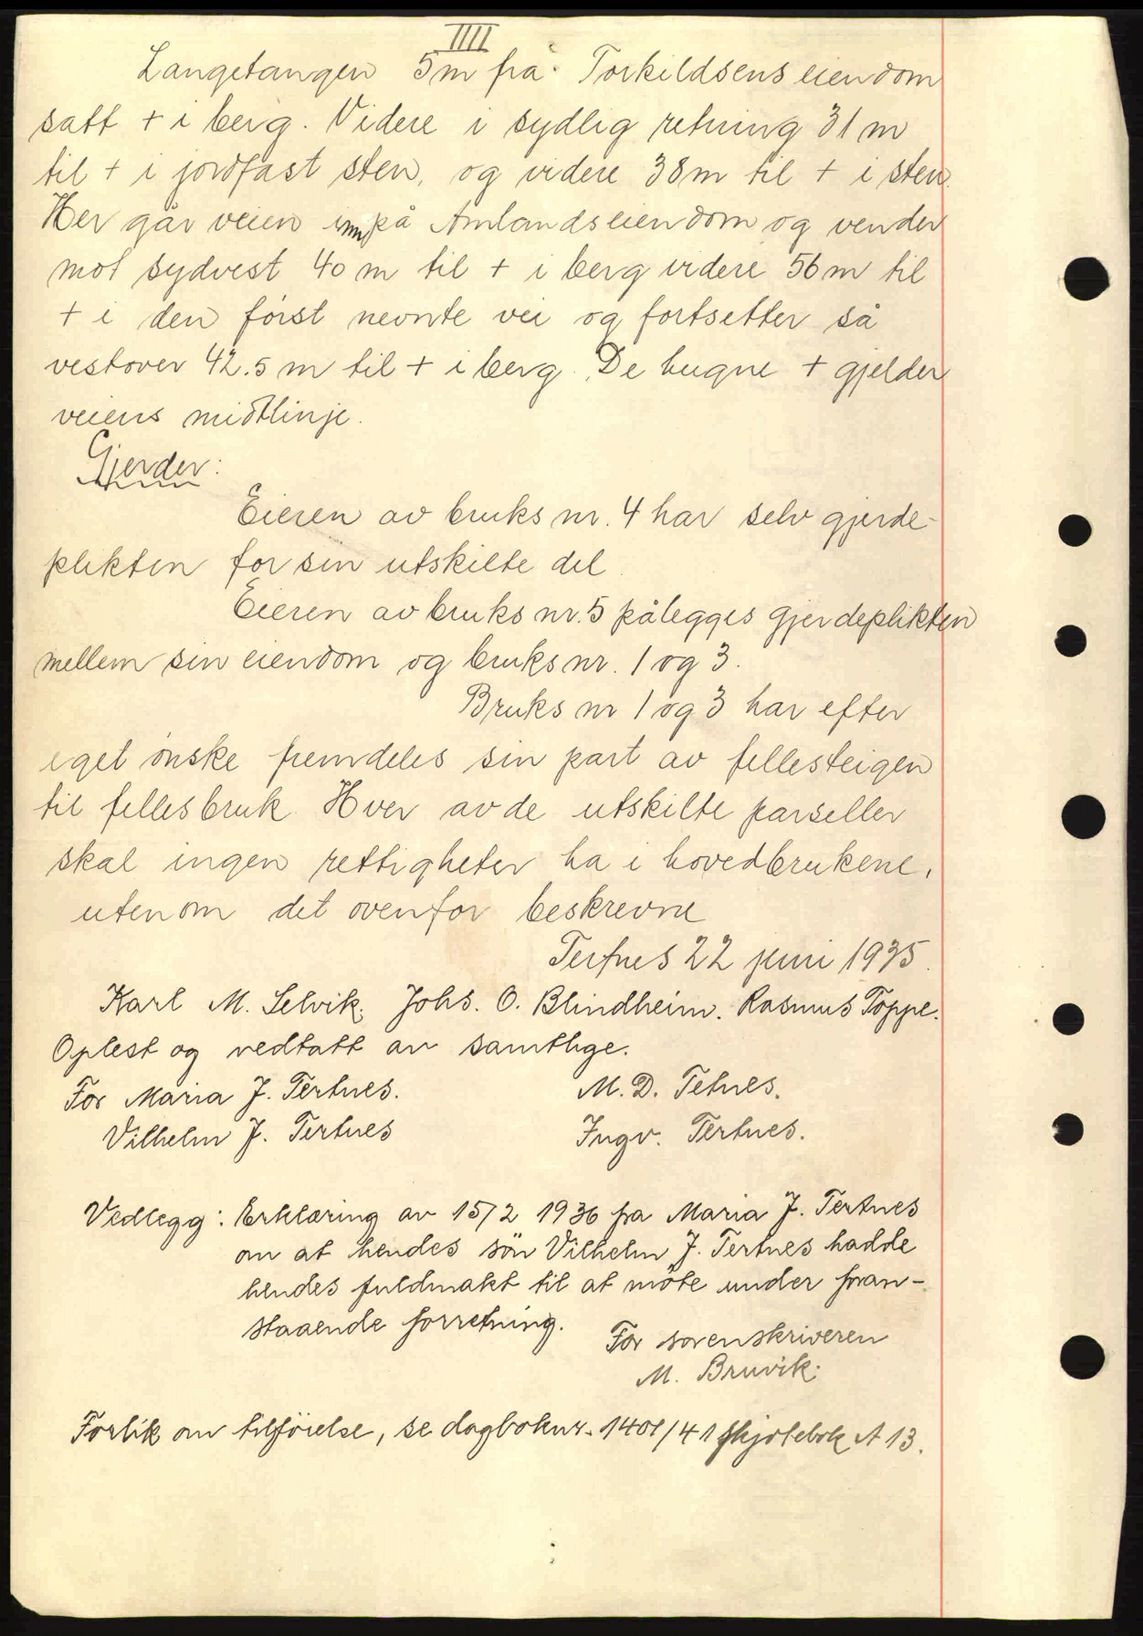 IIII
Langetangen 5m fra Torkildsens eiendom
satt + i berg. Videre i sydlig retning 31 m
til + i jordfast sten, og videre 38m til + i sten.
Her går veien inn på Amlands eiendom og vender
mot sydvest 40 m til + i berg videre 56 m til
+ i den først nevnte vei og fortsetter så
vestover 42.5 m til + i berg. De hugne + gjelder
veiens midtlinje.
Gjerder:
Eieren av bruks nr. 4 har selv gjerde-
plikten for sin utskilte del
Eieren av bruks nr. 5 pålegges gjerdeplikten
mellem sin eiendom og bruks nr. 1 og 3.
Bruks nr 1 og 3 har efter
eget ønske fremdeles sin part av fellesteigen
til felles bruk. Hver av de utskilte parseller
skal ingen rettigheter ha i hovedbrukene,
utenom det ovenfor beskrevne
Tertnes 22 juni 1935.
Karl M. Selvik. Johs. O. Blindheim. Rasmus Toppe.
Oplest og vedtatt av samtlige.
For Maria J. Tertnes. M. D. Tetnes.
Vilhelm J. Tertnes Ingv. Tertnes.
Vedlegg: Erklæring av 15/2 1936 fra Maria J. Tertnes
om at hendes søn Vilhelm J. Tertnes hadde
hendes fuldmakt til at møte under foran-
staaende forretning.
For sorenskriveren
M. Bruvik.
Forlik om tilføielse, se dagboknr. 1401/41 skjøtebok A 13.